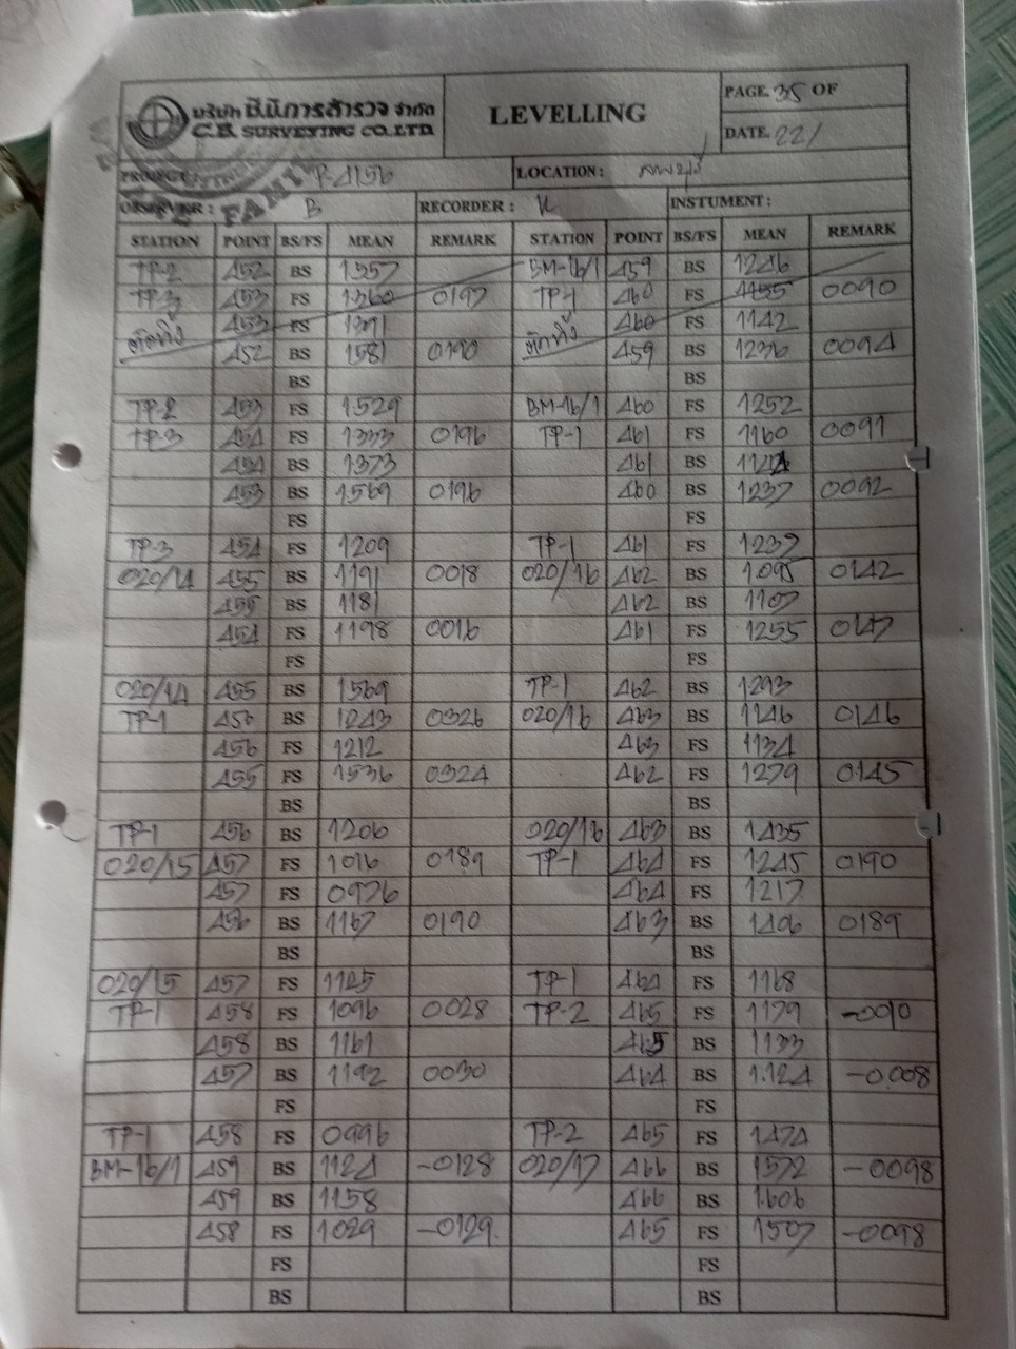 บริษัท ซี.บี.การสำรวจ จำกัด
C.B. SURVEYING CO.,LTD
LEVELLING
PAGE. 35 OF
DATE. 22/
PROJECT : P-4156 LOCATION :
OBSERVER : B RECORDER : K INSTUMENT :
STATION POINT BS/FS MEAN REMARK STATION POINT BS/FS MEAN REMARK
TP-2 452 BS 1557 BM-16/1 459 BS 1246
TP-3 453 FS 1360 0197 TP-1 460 FS 1155 0090
ตัดทิ้ง 453 FS 1391 ตัดทิ้ง 460 FS 1142
452 BS 1581 0190 459 BS 1236 0094
BS BS
TP-2 453 FS 1529 BM-16/1 460 FS 1252
TP-3 454 FS 1333 0196 TP-1 461 FS 1160 0091
454 BS 1373 461 BS
453 BS 1569 0196 460 BS 1237 0092
FS FS
TP-3 454 FS 1209 TP-1 461 FS 1237
020/14 455 BS 1191 0018 020/16 462 BS 1095 0142
455 BS 1181 462 BS 1107
454 FS 1198 0016 461 FS 1255 0147
FS FS
020/14 455 BS 1569 TP-1 462 BS 1293
TP-1 456 BS 1243 0326 020/16 463 BS 1146 0146
456 FS 1212 463 FS 1134
455 FS 1536 0324 462 FS 1279 0145
BS BS
TP-1 456 BS 1206 020/16 463 BS 1435
020/15 457 FS 1016 0189 TP-1 464 FS 1245 0190
457 FS 0976 464 FS 1217
456 BS 1167 0190 463 BS 1406 0189
BS BS
020/15 457 FS 1125 TP-1 464 FS 1168
TP-1 458 FS 1096 0028 TP-2 465 FS 1179 -0010
458 BS 1161 465 BS 1133
457 BS 1192 0030 464 BS 1124 -0008
FS FS
TP-1 458 FS 0996 TP-2 465 FS 1474
BM-16/1 459 BS 1124 -0128 020/17 466 BS 1572 -0098
459 BS 1158 466 BS 1606
458 FS 1029 -0129 465 FS 1507 -0098
FS FS
BS BS